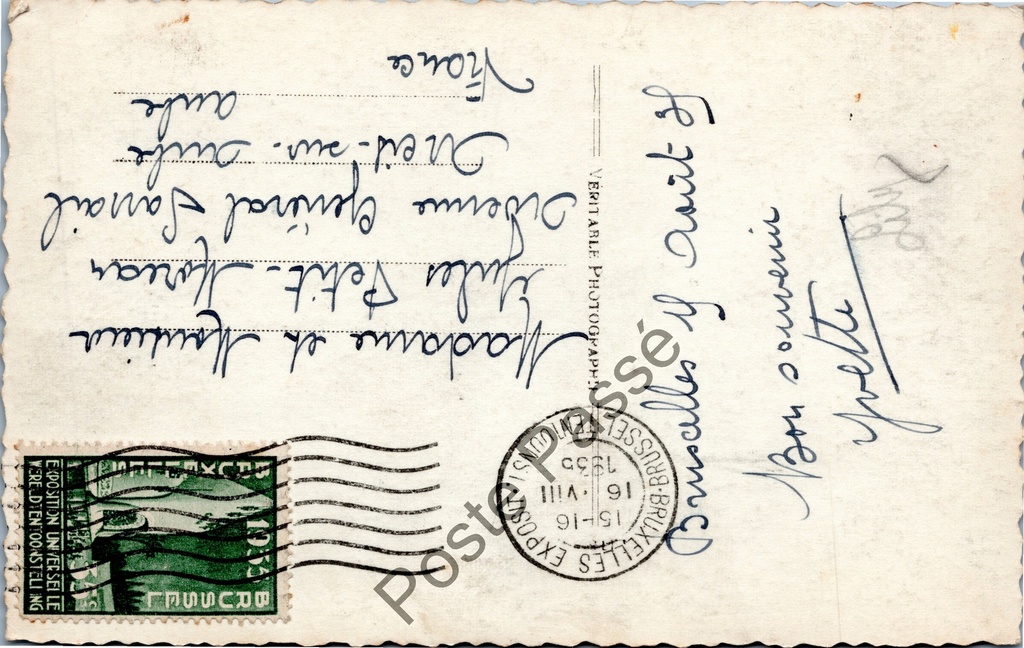 Bruxelles 15 Août 35
Bon souvenir
Yvette
VÉRITABLE PHOTOGRAPHIE
Madame et Monsieur
Jules Petit-Moreau
Avenue Général Sarrail
Arcis-sur-Aube
Aube
France
BRUXELLES EXPOSIT
BRUSSEL TENTOONST
15-16
16 VIII
1935
BRUXELLES
1935
BRUSSEL
35c
EXPOSITION UNIVERSELLE
WERELDTENTOONSTELLING
Poste Passé